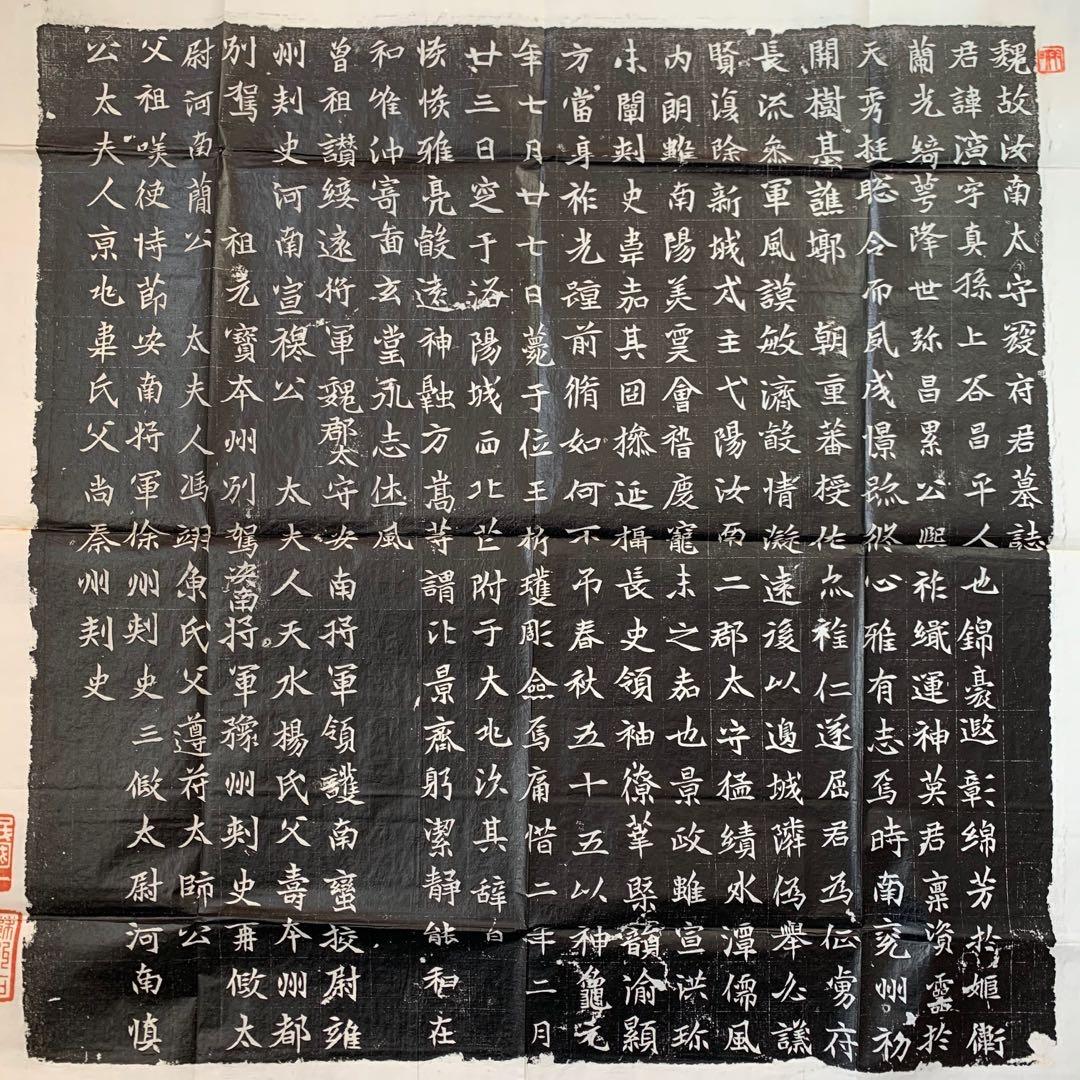 魏故汝南太守寇府君墓誌
君諱演字真孫上谷昌平人也錦裛遐彰綿芳扵姬衛
蘭光綺萼降世弥昌累公熙祚熾運神英君禀資靈扵
天秀挺聡令而夙成憬心雅有志焉時南兖州初
開樹基譙墎朝重蕃授佐亦仁遂屈君為征虜府
長流叅軍風謨敏濟韻情凝遠後以邊城隣偽舉必議
賢復除新城戍主弋陽汝南二郡太守猛績水潭儒風
内朗雖南陽美會稽慶寵未之嘉也景政雖宣洪珎
未闡刾史嘉其固操延攝長史領袖僚槩韻渝顯
方當享祚光踵前脩如何不吊春秋五十五以神龜元
年七月廿七日薨于位玉折瓊彫僉焉痛惜二年二月
廿三日窆于洛陽城西北芒附于大兆次其辞曰
雅亮韻遠神融方嵩等謂比景齊躬潔静能和在
和惟沖寄玄堂永志休風
曾祖讃綏遠將軍魏郡太守安南將軍領護南蠻挍尉雍
州刾史河南宣穆公太夫人天水楊氏父壽本州都
别駕祖元寶本州别駕安南將軍豫州刾史再假太
尉河南簡公太夫人馮翊魚氏父遵苻太師公
父祖嘆使持節安南將軍徐州刾史三假太尉河南慎
公太夫人京兆韋氏父尚秦州刾史